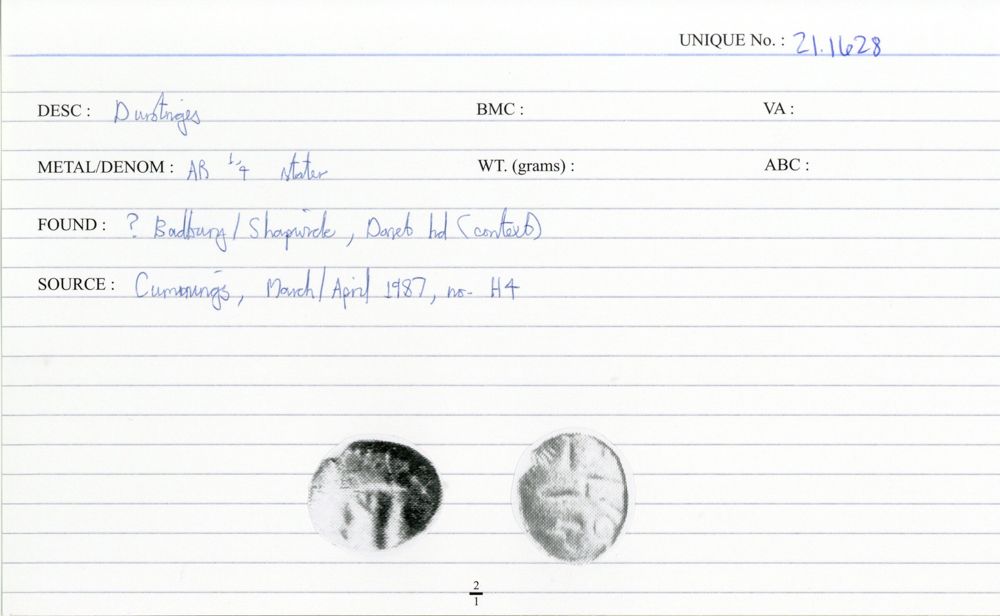 UNIQUE No. : 21.1628
DESC : Durotriges BMC : VA :
METAL/DENOM : AR 1/4 stater WT. (grams) : ABC :
FOUND : ? Badbury / Shapwick, Dorset hd (context)
SOURCE : Cummings, March/April 1987, no. H4
2
1